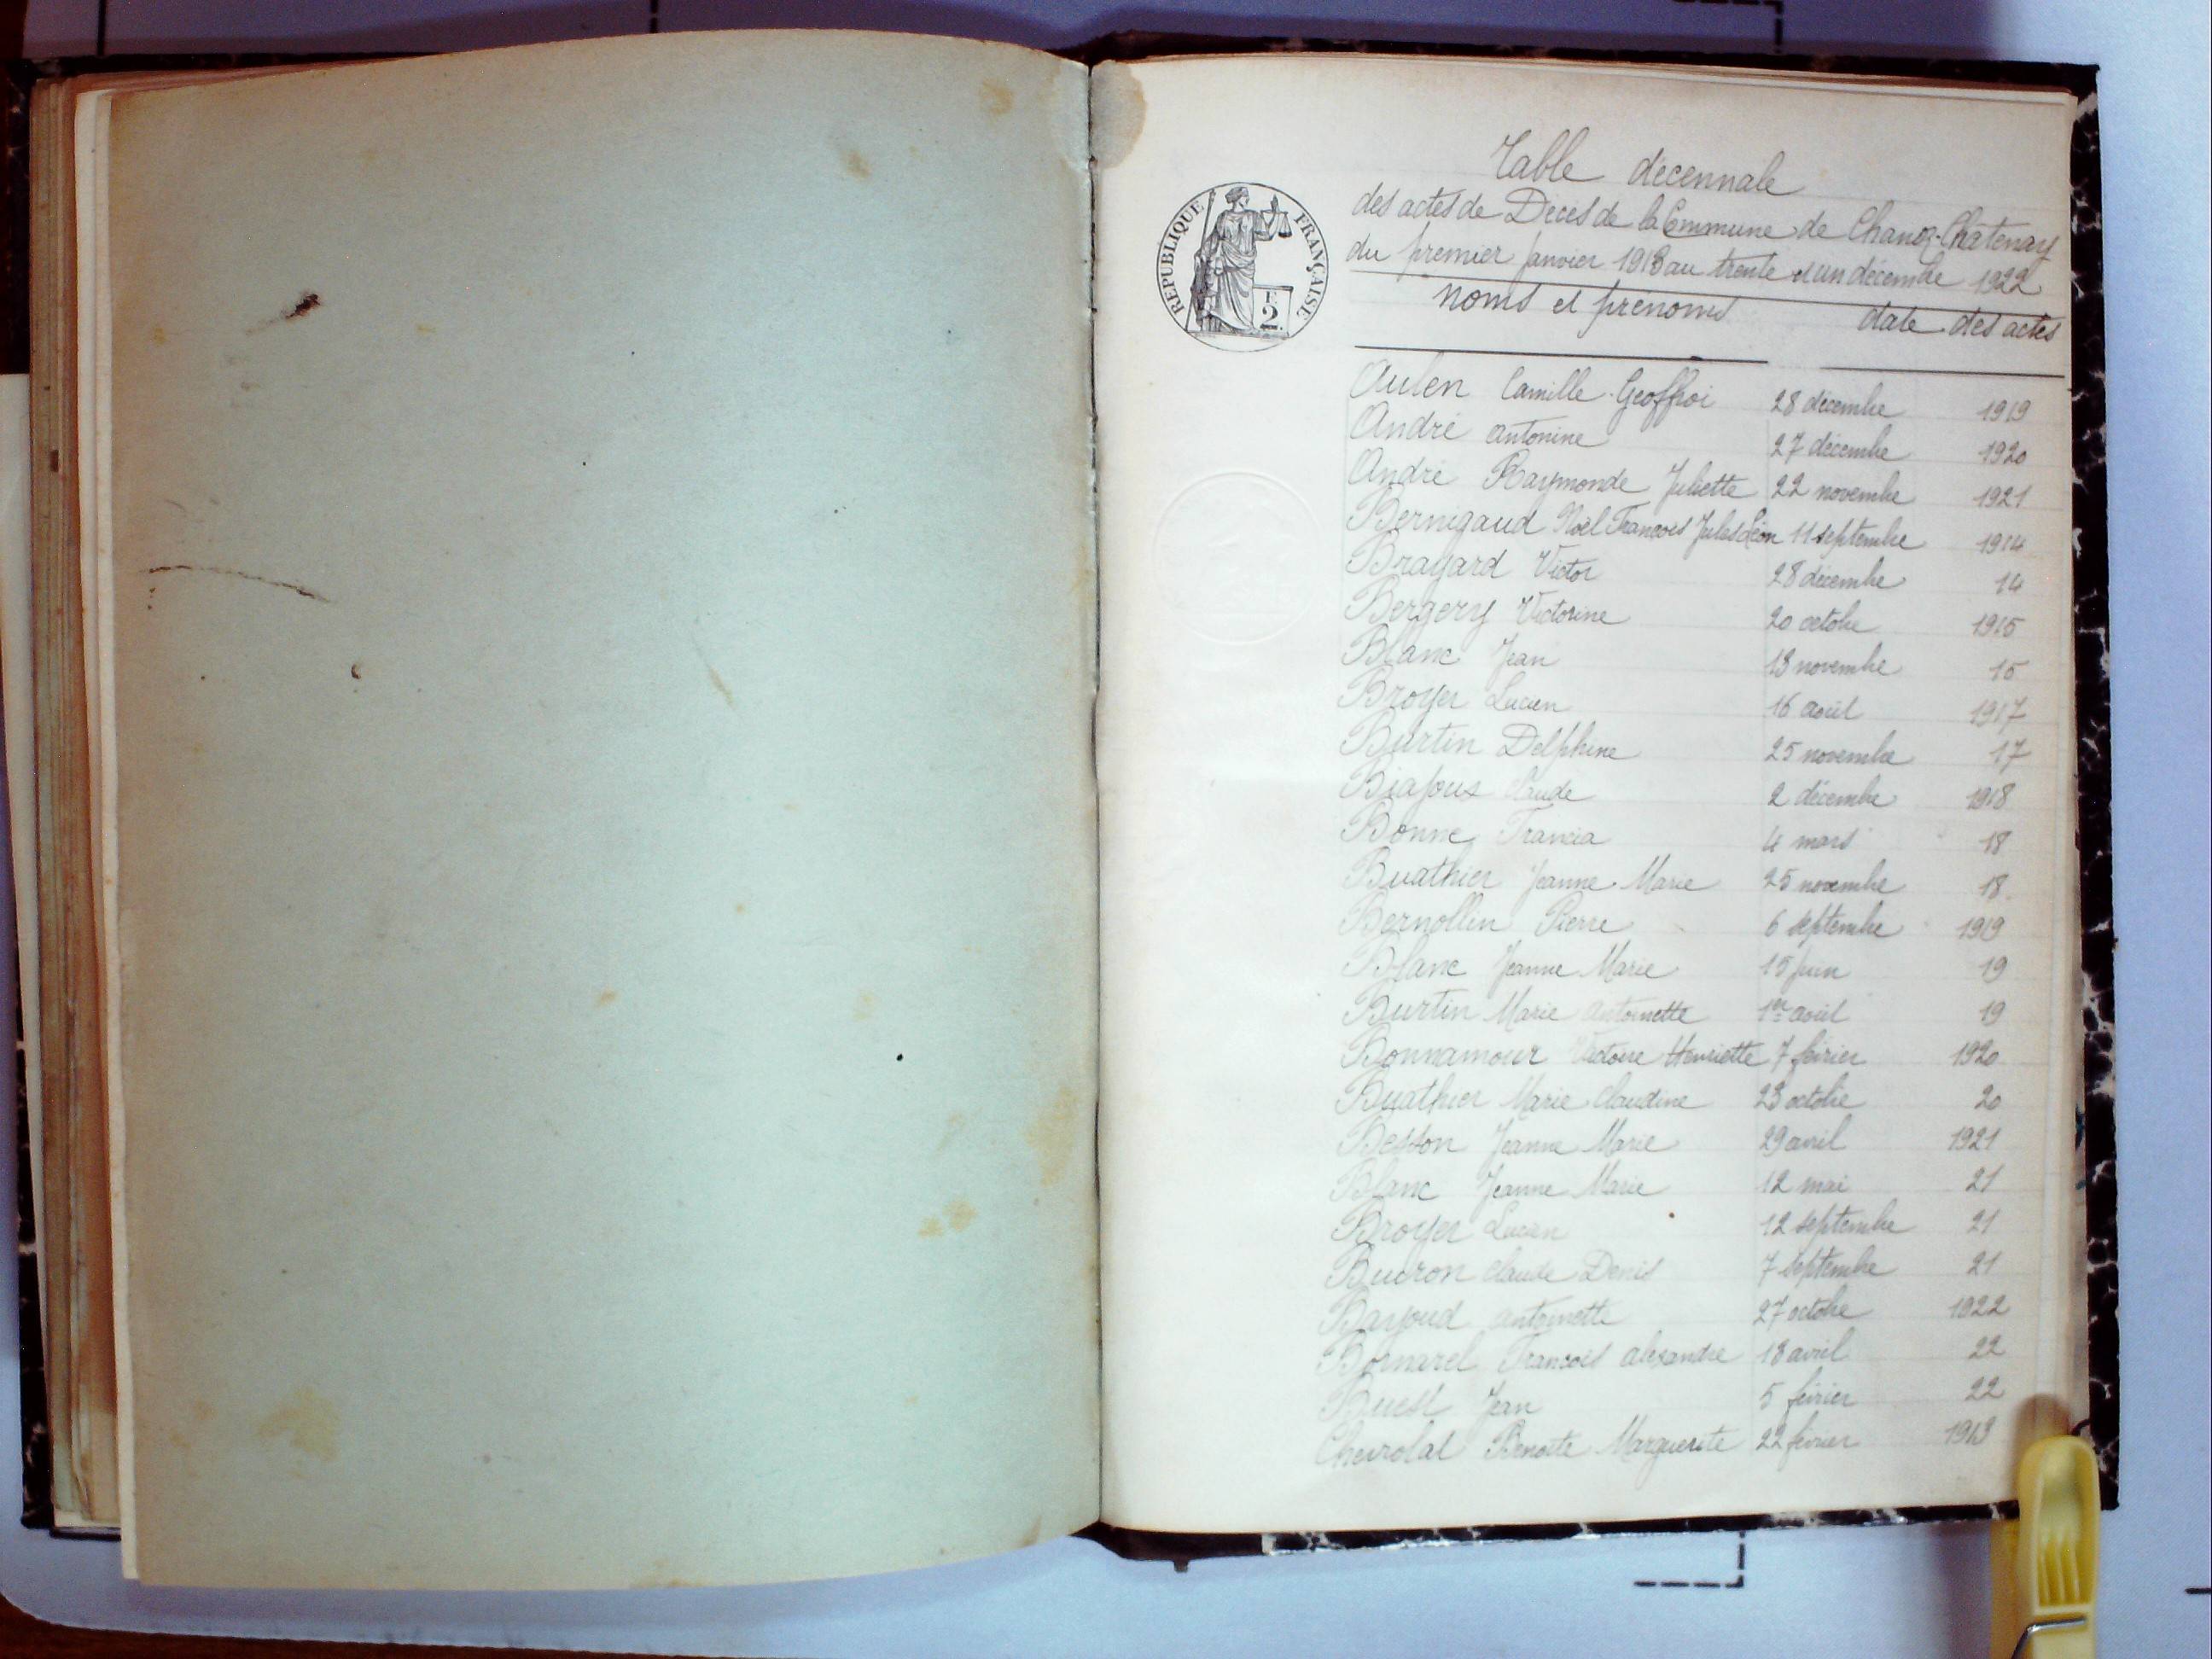 Table décennale
des actes de Décès de la Commune de Chanoz-Chatenay
du premier Janvier 1913 au trente et un décembre 1922
RÉPUBLIQUE FRANÇAISE
2
noms et prénoms date des actes
Aulen Camille Geoffroi 28 décembre 1919
André antonine 27 décembre 1920
André Raymonde Juliette 22 novembre 1921
Bernigaud Noël François Jules Léon 11 septembre 1914
Brayard Victor 28 décembre 14
Bergery Victorine 20 octobre 1915
Blanc Jean 13 novembre 15
Broyer Lucien 16 août 1917
Burtin Delphine 25 novembre 17
Biajoux Claude 2 décembre 1918
Bonne Francia 4 mars 18
Buathier Jeanne Marie 25 novembre 18
Bernollin Pierre 6 septembre 1919
Blanc Jeanne Marie 15 juin 19
Burtin Marie antoinette 1er août 19
Bonnamour Victoire Henriette 7 février 1920
Buathier Marie Claudine 23 octobre 20
Besson Jeanne Marie 29 avril 1921
Blanc Jeanne Marie 12 mai 21
Broyer Lucien 12 septembre 21
Buiron Claude Denis 7 septembre 21
Bayoud antoinette 27 octobre 1922
Bornarel François alexandre 18 avril 22
Buest Jean 5 février 22
Chevrolat Benoite Marguerite 22 février 1913